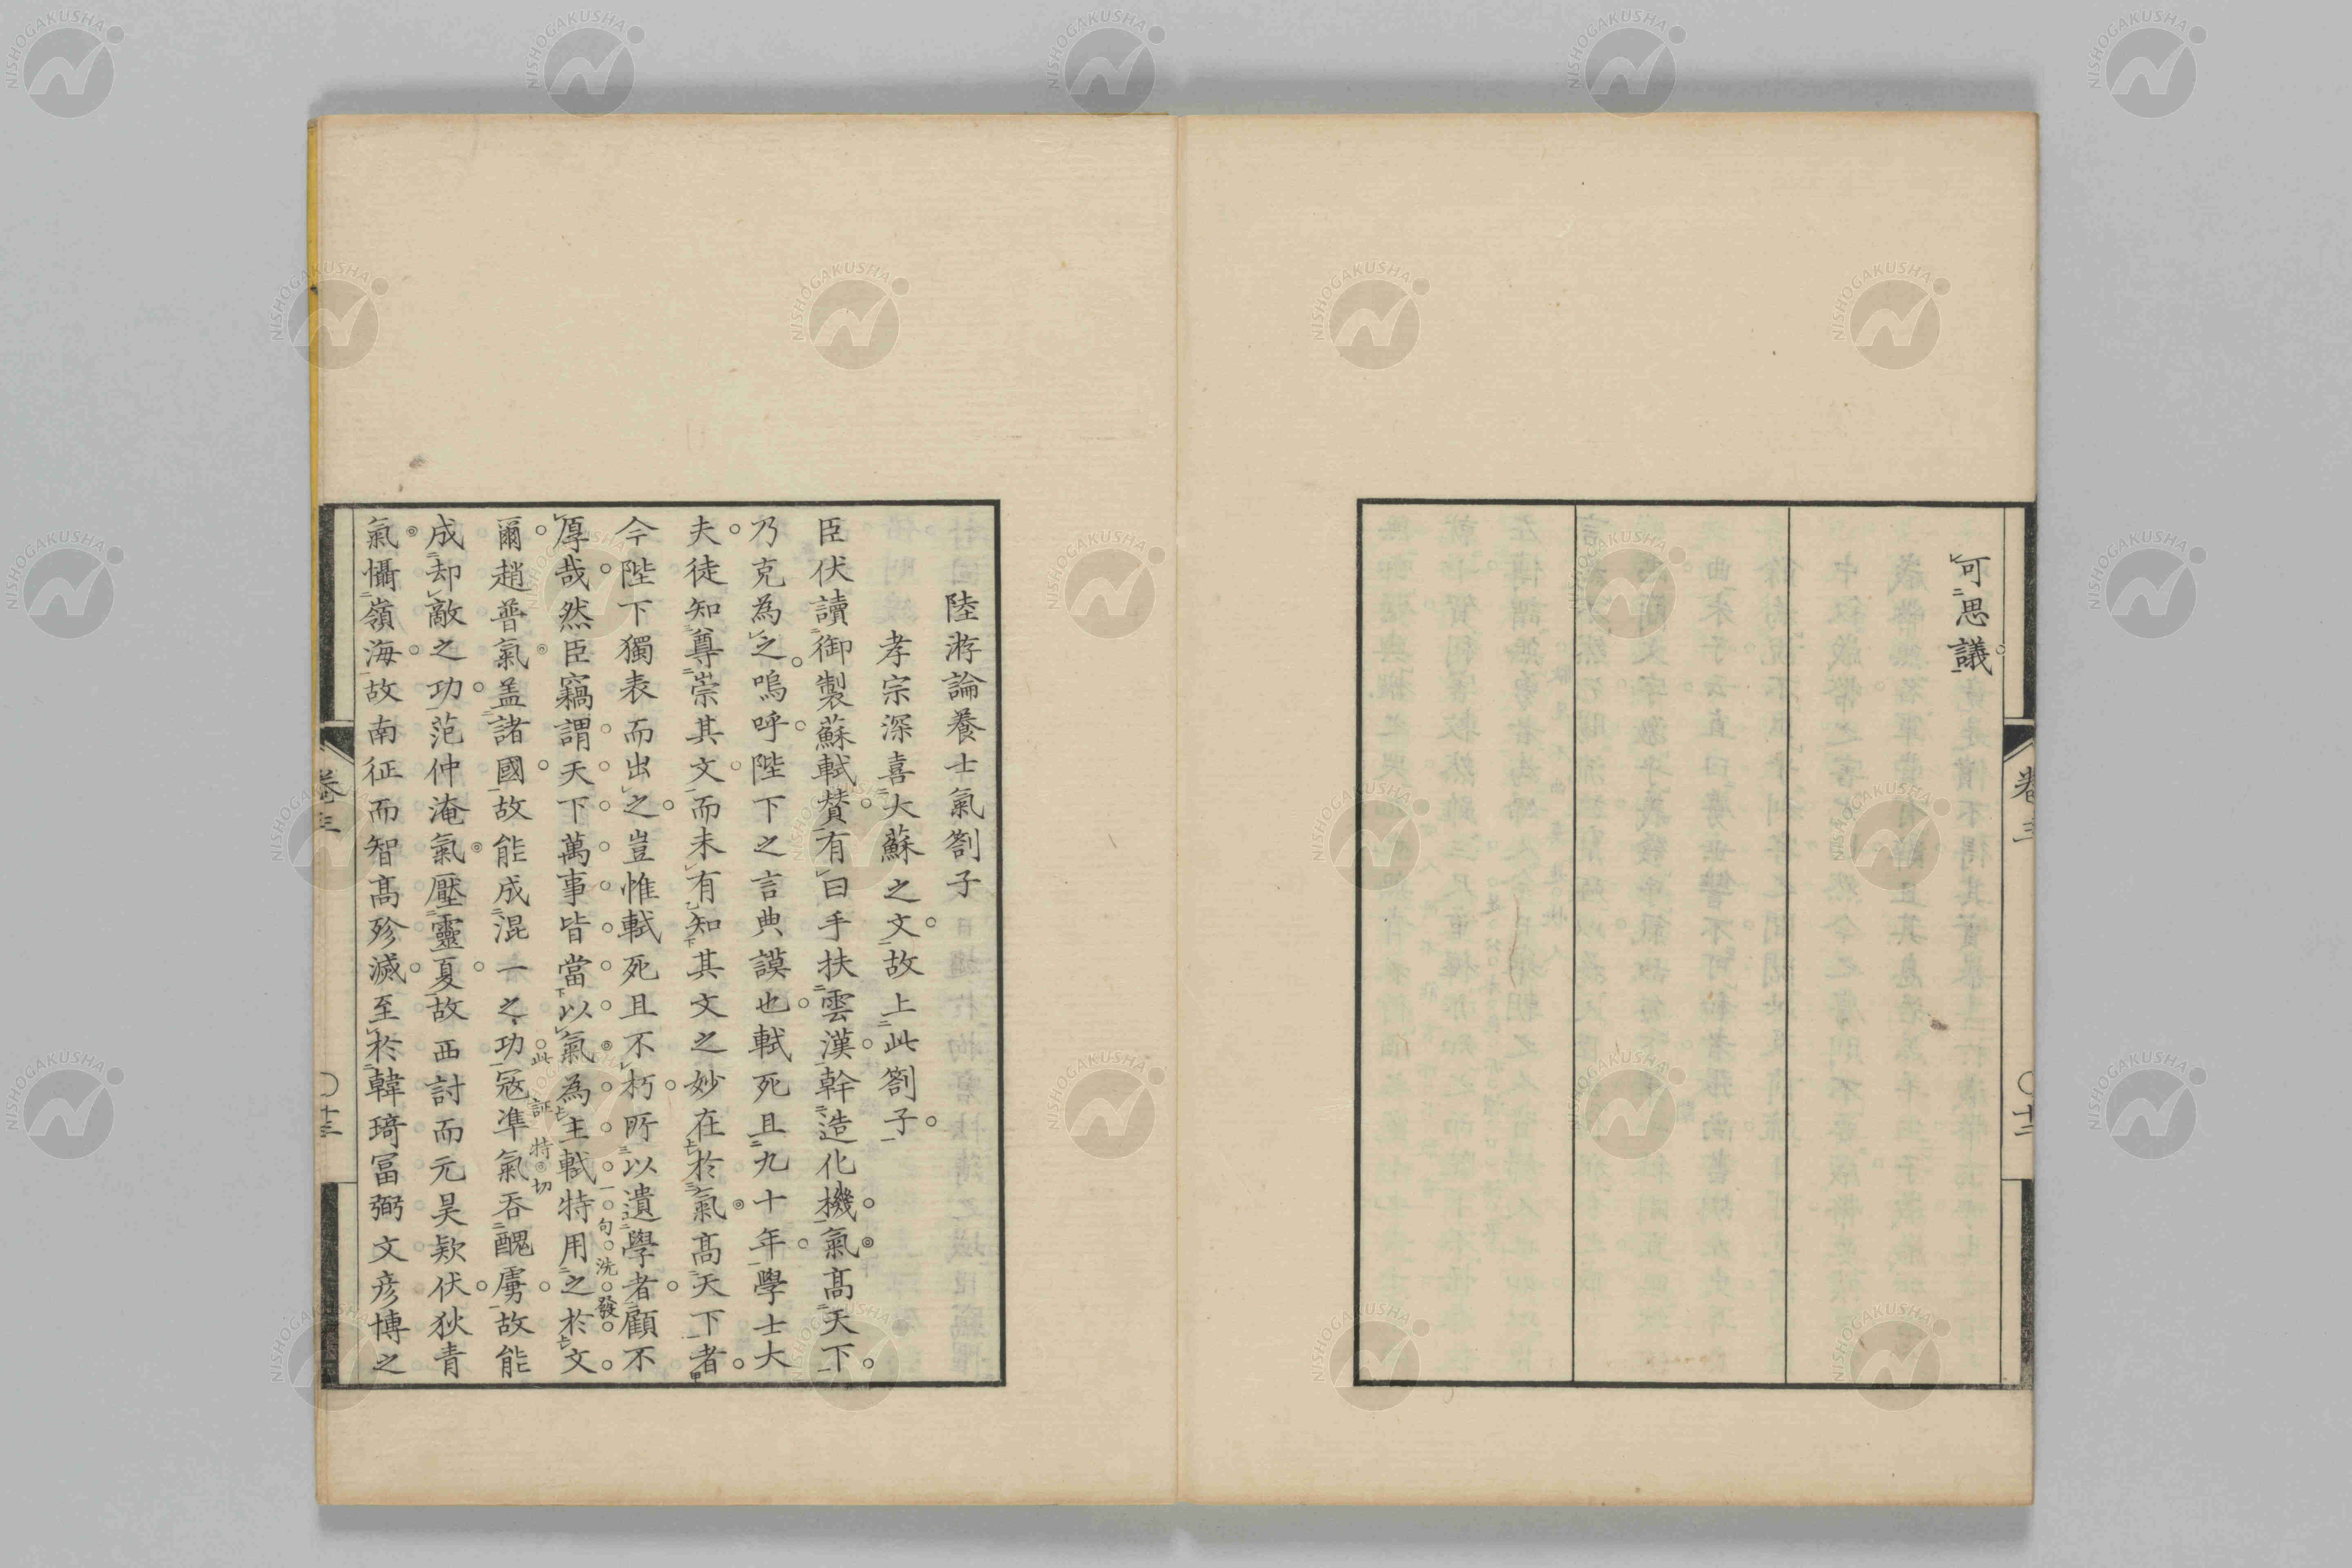 可思議
卷三
十二
陸游論養士氣劄子
孝宗深喜大蘇之文故上此劄子
臣伏讀御製蘇軾贊有曰手扶雲漢幹造化機氣高天下
乃克為之嗚呼陛下之言典謨也軾死且九十年學士大
夫徒知尊崇其文而未有知其文之妙在於氣高天下者
今陛下獨表而出之豈惟軾死且不朽所以遺學者顧不
厚哉然臣竊謂天下萬事皆當以氣為主軾特用之於文
一句洗發
爾趙普氣盖諸國故能成混一之功冦準氣吞醜虜故能
此証特切
成却敵之功范仲淹氣壓靈夏故西討而元昊欵伏狄青
氣懾嶺海故南征而智高殄滅至於韓琦冨弼文彦博之
卷三
十三
NISHOGAKUSHA